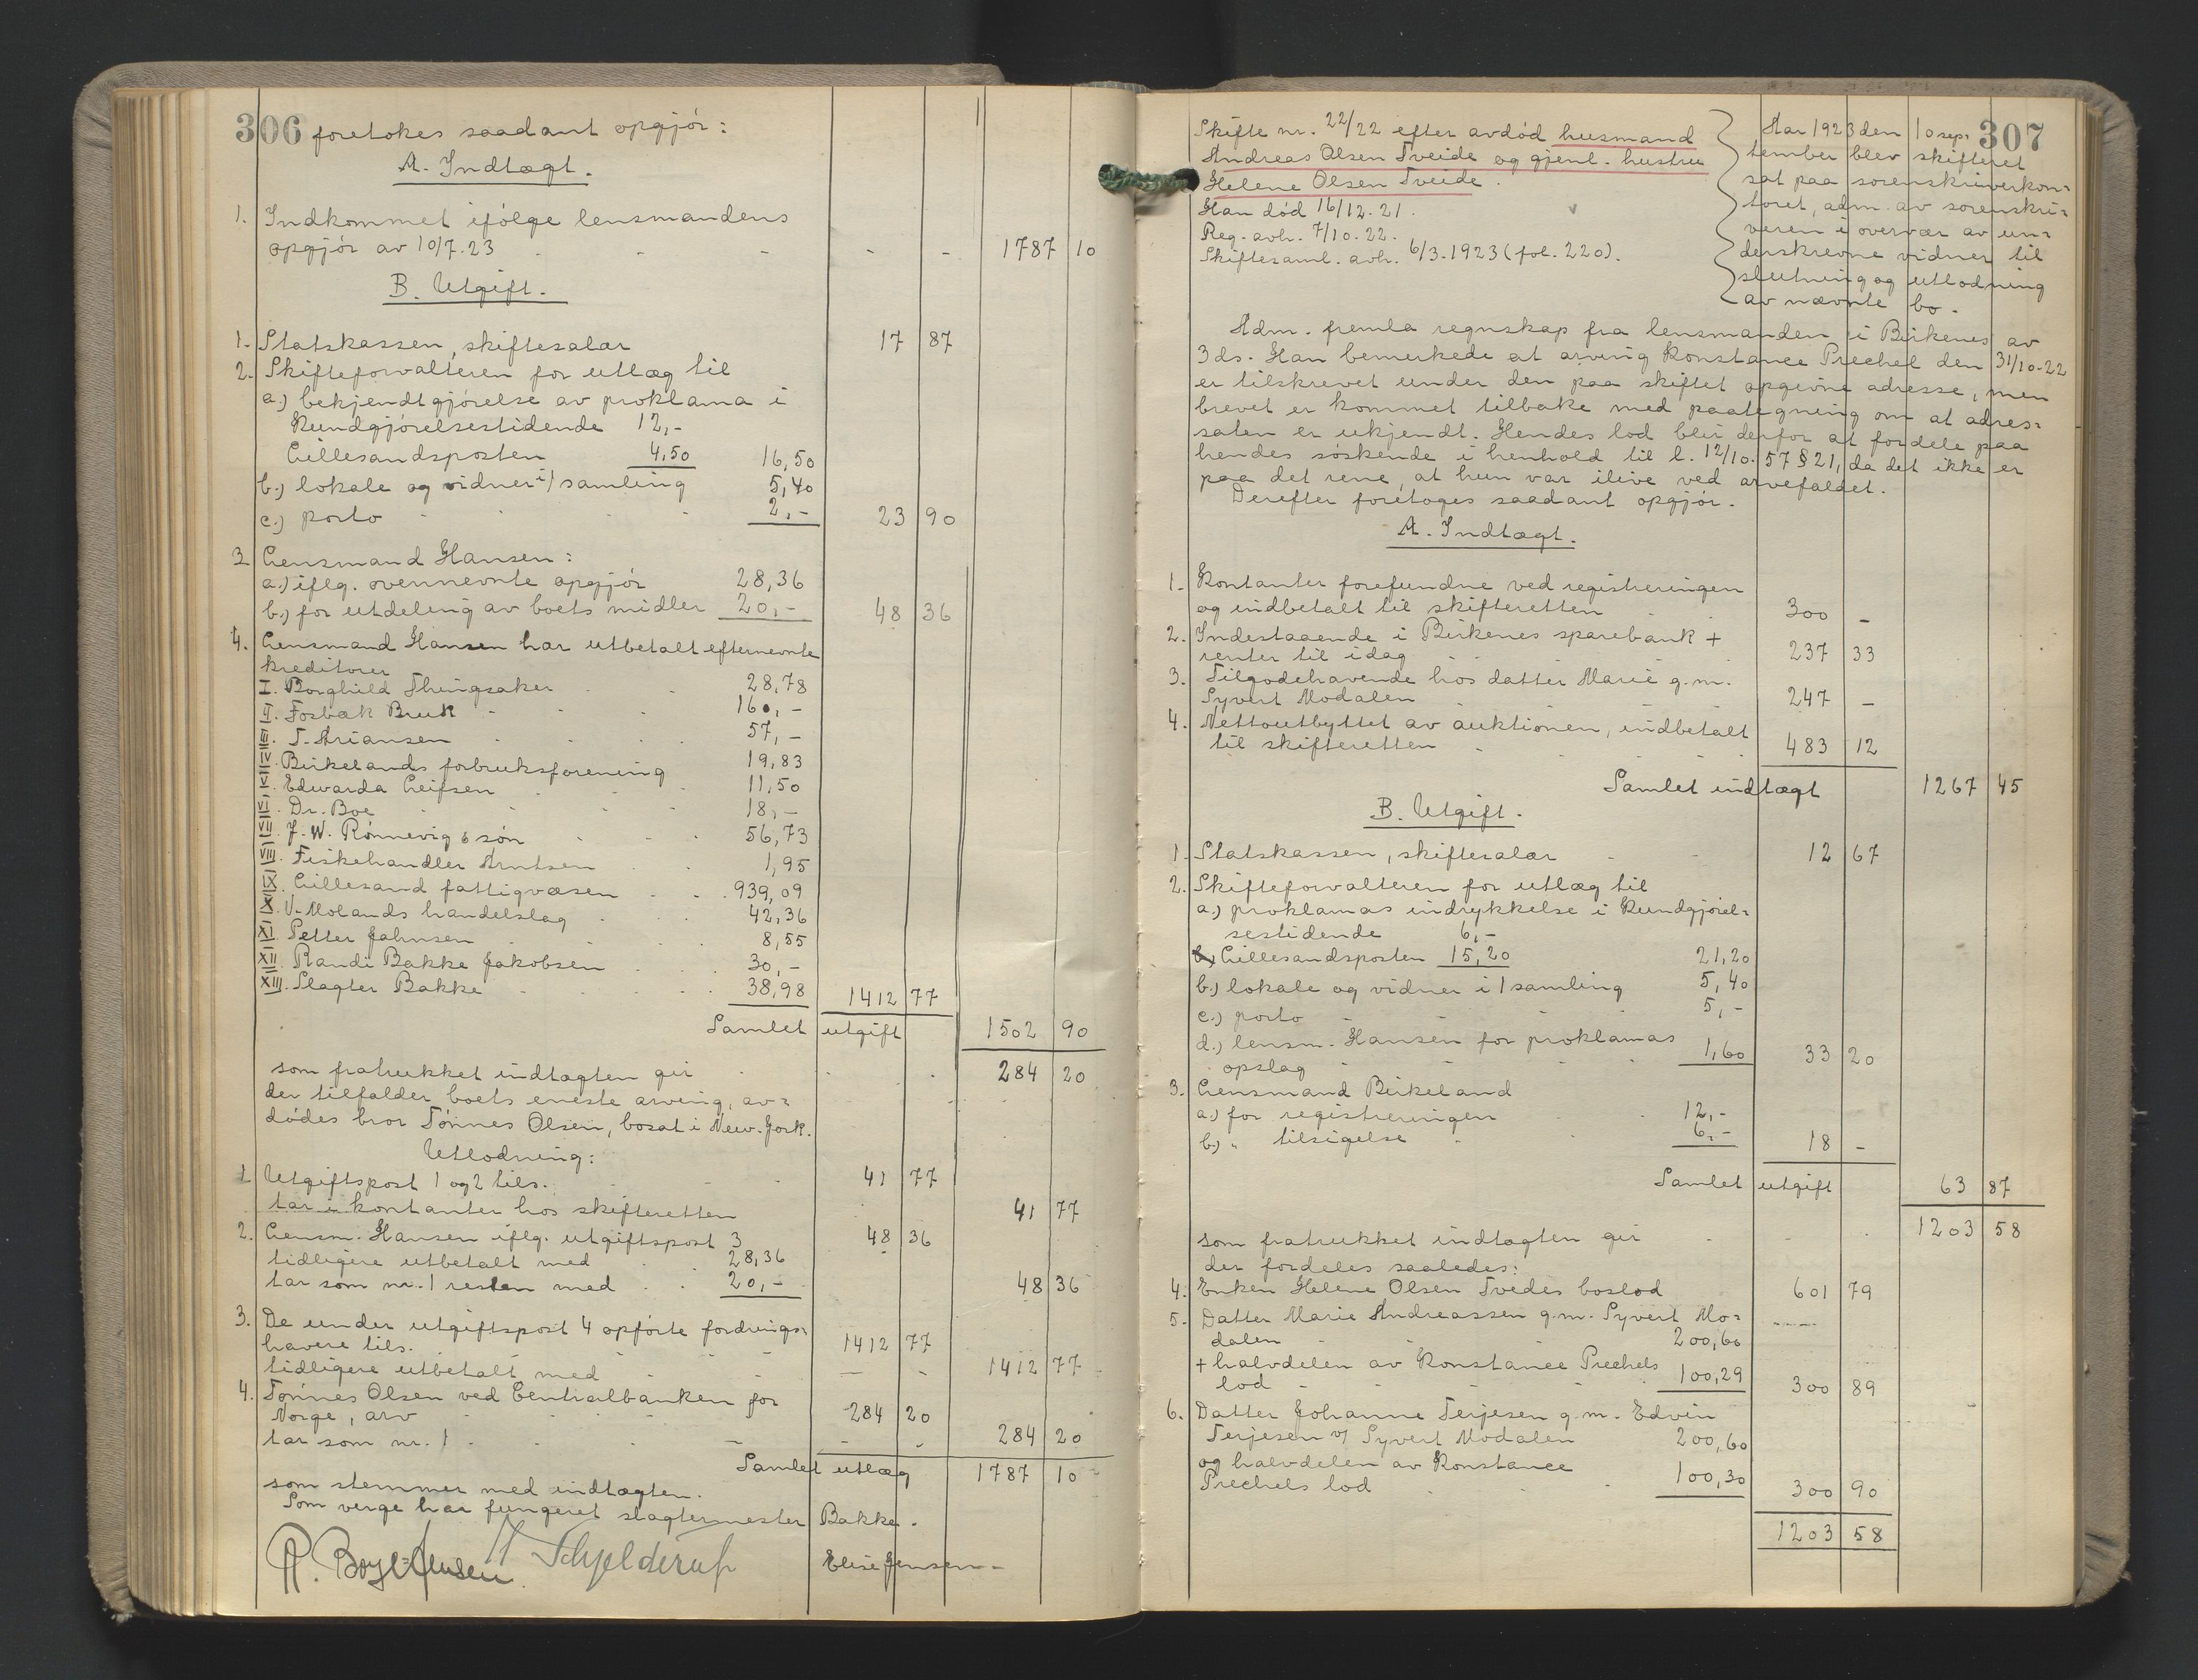 306 foretokes saadant opgjør:
A. Indtægt.
1. Indkommet ifølge lensmandens
opgjør av 10/7.23 - - - - 1787 10
B. Utgift.
1. Statskassen, skiftesalær 17 87
2. Skifteforvalteren for utlæg til
a.) bekjendtgjørelse av proklama i
Kundgjørelsestidende 12,-
Lillesandsposten 4,50 16,50
b.) lokale og vidner i 1 samling 5,40
c.) porto - - - 2,- 23 90
3. Lensmand Hansen:
a.) iflg. ovennevnte opgjør 28,36
b.) for utdeling av boets midler 20,- 48 36
4. Lensmand Hansen har utbetalt efternevnte
kreditorer
I. Borghild Thingsaker - - 28,78
II. Fosbæk Bruk - - - 160,-
III. T. Ariansen - - - 57,-
IV. Birkelands forbruksforening 19,83
V. Edwarda Leifsen - - - 11,50
VI. Dr. Boe - - - 18,-
VII. J. W. Rønnevig & søn - - - 56,73
VIII. Fiskehandler Arntsen - - 1,95
IX. Lillesand fattigvæsen - - - 939,09
X. V. Molands handelslag - - 42,36
XI. Petter Jahnsen - - - 8,55
XII. Randi Bakke Jakobsen - - - 30,-
XIII. Slagter Bakke - - - 38,98 1412 77
Samlet utgift 1502 90
som fratrukket indtægten gir - - - 284 20
der tilfalder boets eneste arving, av=
dødes bror Tønnes Olsen, bosat i New-York.
Utlodning:
1. Utgiftspost 1 og 2 tils. - - - 41 77
tar i kontanter hos skifteretten 41 77
2. Lensm. Hansen iflg. utgiftspost 3 48 36
tidligere utbetalt med - - 28,36
tar som nr. 1 resten med - - 20,- 48 36
3. De under utgiftspost 4 opførte fordrings=
havere tils. - - - 1412 77
tidligere utbetalt med - - - 1412 77
4. Tønnes Olsen ved Centralbanken for
Norge, arv - - - 284 20
tar som nr. 1 - - - 284 20
Samlet utlæg 1787 10
som stemmer med indtægten.
Som verge har fungeret slagtermester Bakke.
Schjelderup Elise Jensen
307
Skifte nr. 22/22 efter avdød husmand
Andreas Olsen Tveide og gjenl. hustru
Helene Olsen Tveide.
Han død 16/12.21.
Reg. avh. 7/10.22.
Skiftesaml. avh. 6/3.1923 (fol. 220).
Aar 1923 den 10 sep=
tember blev skifteret
sat paa sorenskriverkon=
toret, adm. av sorenskri=
veren i overvær av un=
derskrevne vidner til
slutning og utlodning
av nævnte bo.
Adm. fremla regnskap fra lensmanden i Birkenes av
3 ds. Han bemerkede at arving Konstance Prechel den 31/10-22
er tilskrevet under den paa skiftet opgivne adresse, men
brevet er kommet tilbake med paategning om at adres=
saten er ukjendt. Hendes lod blir derfor at fordele paa
hendes søskende i henhold til l. 12/10.57 § 21, da det ikke er
paa det rene, at hun var ilive ved arvefaldet.
Derefter foretoges saadant opgjør.
A. Indtægt.
1. Kontanter forefundne ved registreringen
og indbetalt til skifteretten - - 300 -
2. Indestaaende i Birkenes sparebank +
renter til idag - - - 237 33
3. Tilgodehavende hos datter Marie g.m.
Syvert Modalen - - - 247 -
4. Nettoutbyttet av auktionen, indbetalt
til skifteretten - - - 483 12
Samlet indtægt 1267 45
B. Utgift.
1. Statskassen, skiftesalær - - 12 67
2. Skifteforvalteren for utlæg til
a.) proklamas indrykkelse i Kundgjørel=
sestidende 6,-
Lillesandsposten 15,20 21,20
b.) lokale og vidner i 1 samling 5,40
c.) porto - - - 5,-
d.) lensm. Hansen for proklamas
opslag - - - 1,60 33 20
3. Lensmand Birkeland
a.) for registreringen - - 12,-
b.) " tilsigelse - - 6,- 18 -
Samlet utgift 63 87
som fratrukket indtægten gir - - - 1203 58
der fordeles saaledes:
4. Enken Helene Olsen Tvedes boslod 601 79
5. Datter Marie Andreassen g.m. Syvert Mo=
dalen - - - 200,60
+ halvdelen av Konstance Prechels
lod - - - 100,29 300 89
6. Datter Johanne Terjesen g.m. Edvin
Terjesen v/ Syvert Modalen 200,60
og halvdelen av Konstance
Prechels lod - - - 100,30 300 90
1203 58